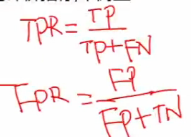 TPR = TP / TP+FN
FPR = FP / FP+TN